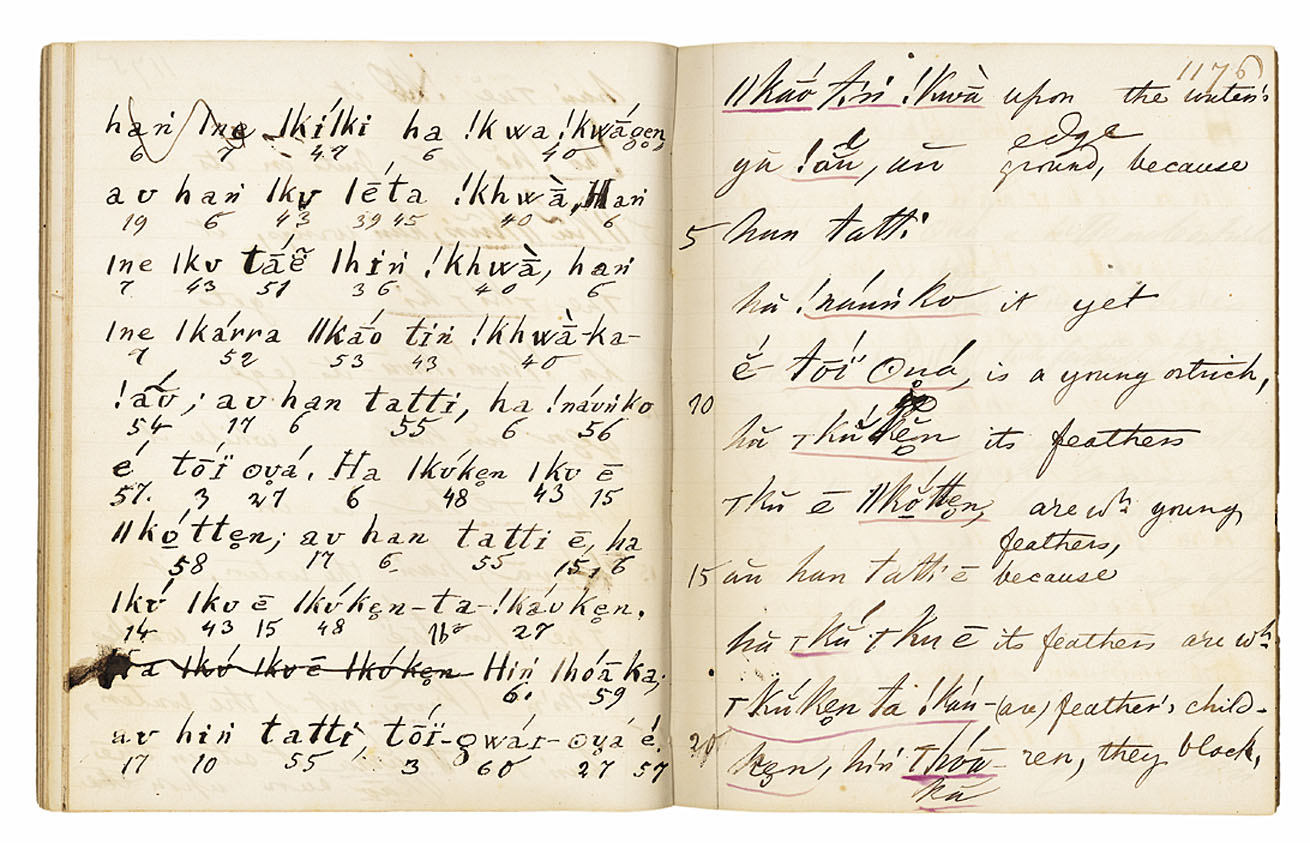 han ǀne ǀkíǀki ha !kwa !kwágen,
6 7 47 6 40
au han ǀku ǀḗta !khwà̄, Han
19 6 43 39 45 40 6
ǀne ǀku táē̃ ǀhiṅ !khwà̄, haṅ
7 43 51 36 40 6
ǀne ǀkárra ǁkā́o tiṅ !khwà̄-ka-
7 52 53 43 40
!áu; au han tatti, ha !náunko
54 17 6 55 6 56
é tṓï ʘuá. Ha ǀkúken ǀku ē
57. 3 27 6 48 43 15
ǁkótten; au han tatti ē, ha
58 17 6 55 15, 6
ǀkú ǀku ē ǀkúken-ta-!káuken.
14 43 15 48 16 27
Hiṅ ǀhóāka;
6. 59
au hiṅ tatti, tṓï-gwái-ʘuá é.
17 10 55 3 60 27 57
1176)
ǁkā́o tiṅ !kwà̄ upon the water's
edge
ground, because
5 han tatti
hă !náuṅko it yet
é tṓï ʘuá, is a young ostrich,
10
its feathers
ǀkŭ ē ǁkótten, are wh. young
feathers,
15 au han tatti ē because
hă ǀkŭ́ ǀku ē its feathers are wh.
ǀkŭ́ken ta !káu- (are) feather's child-
20 ken, hiṅ ǀhóā- ren, they black,
kā